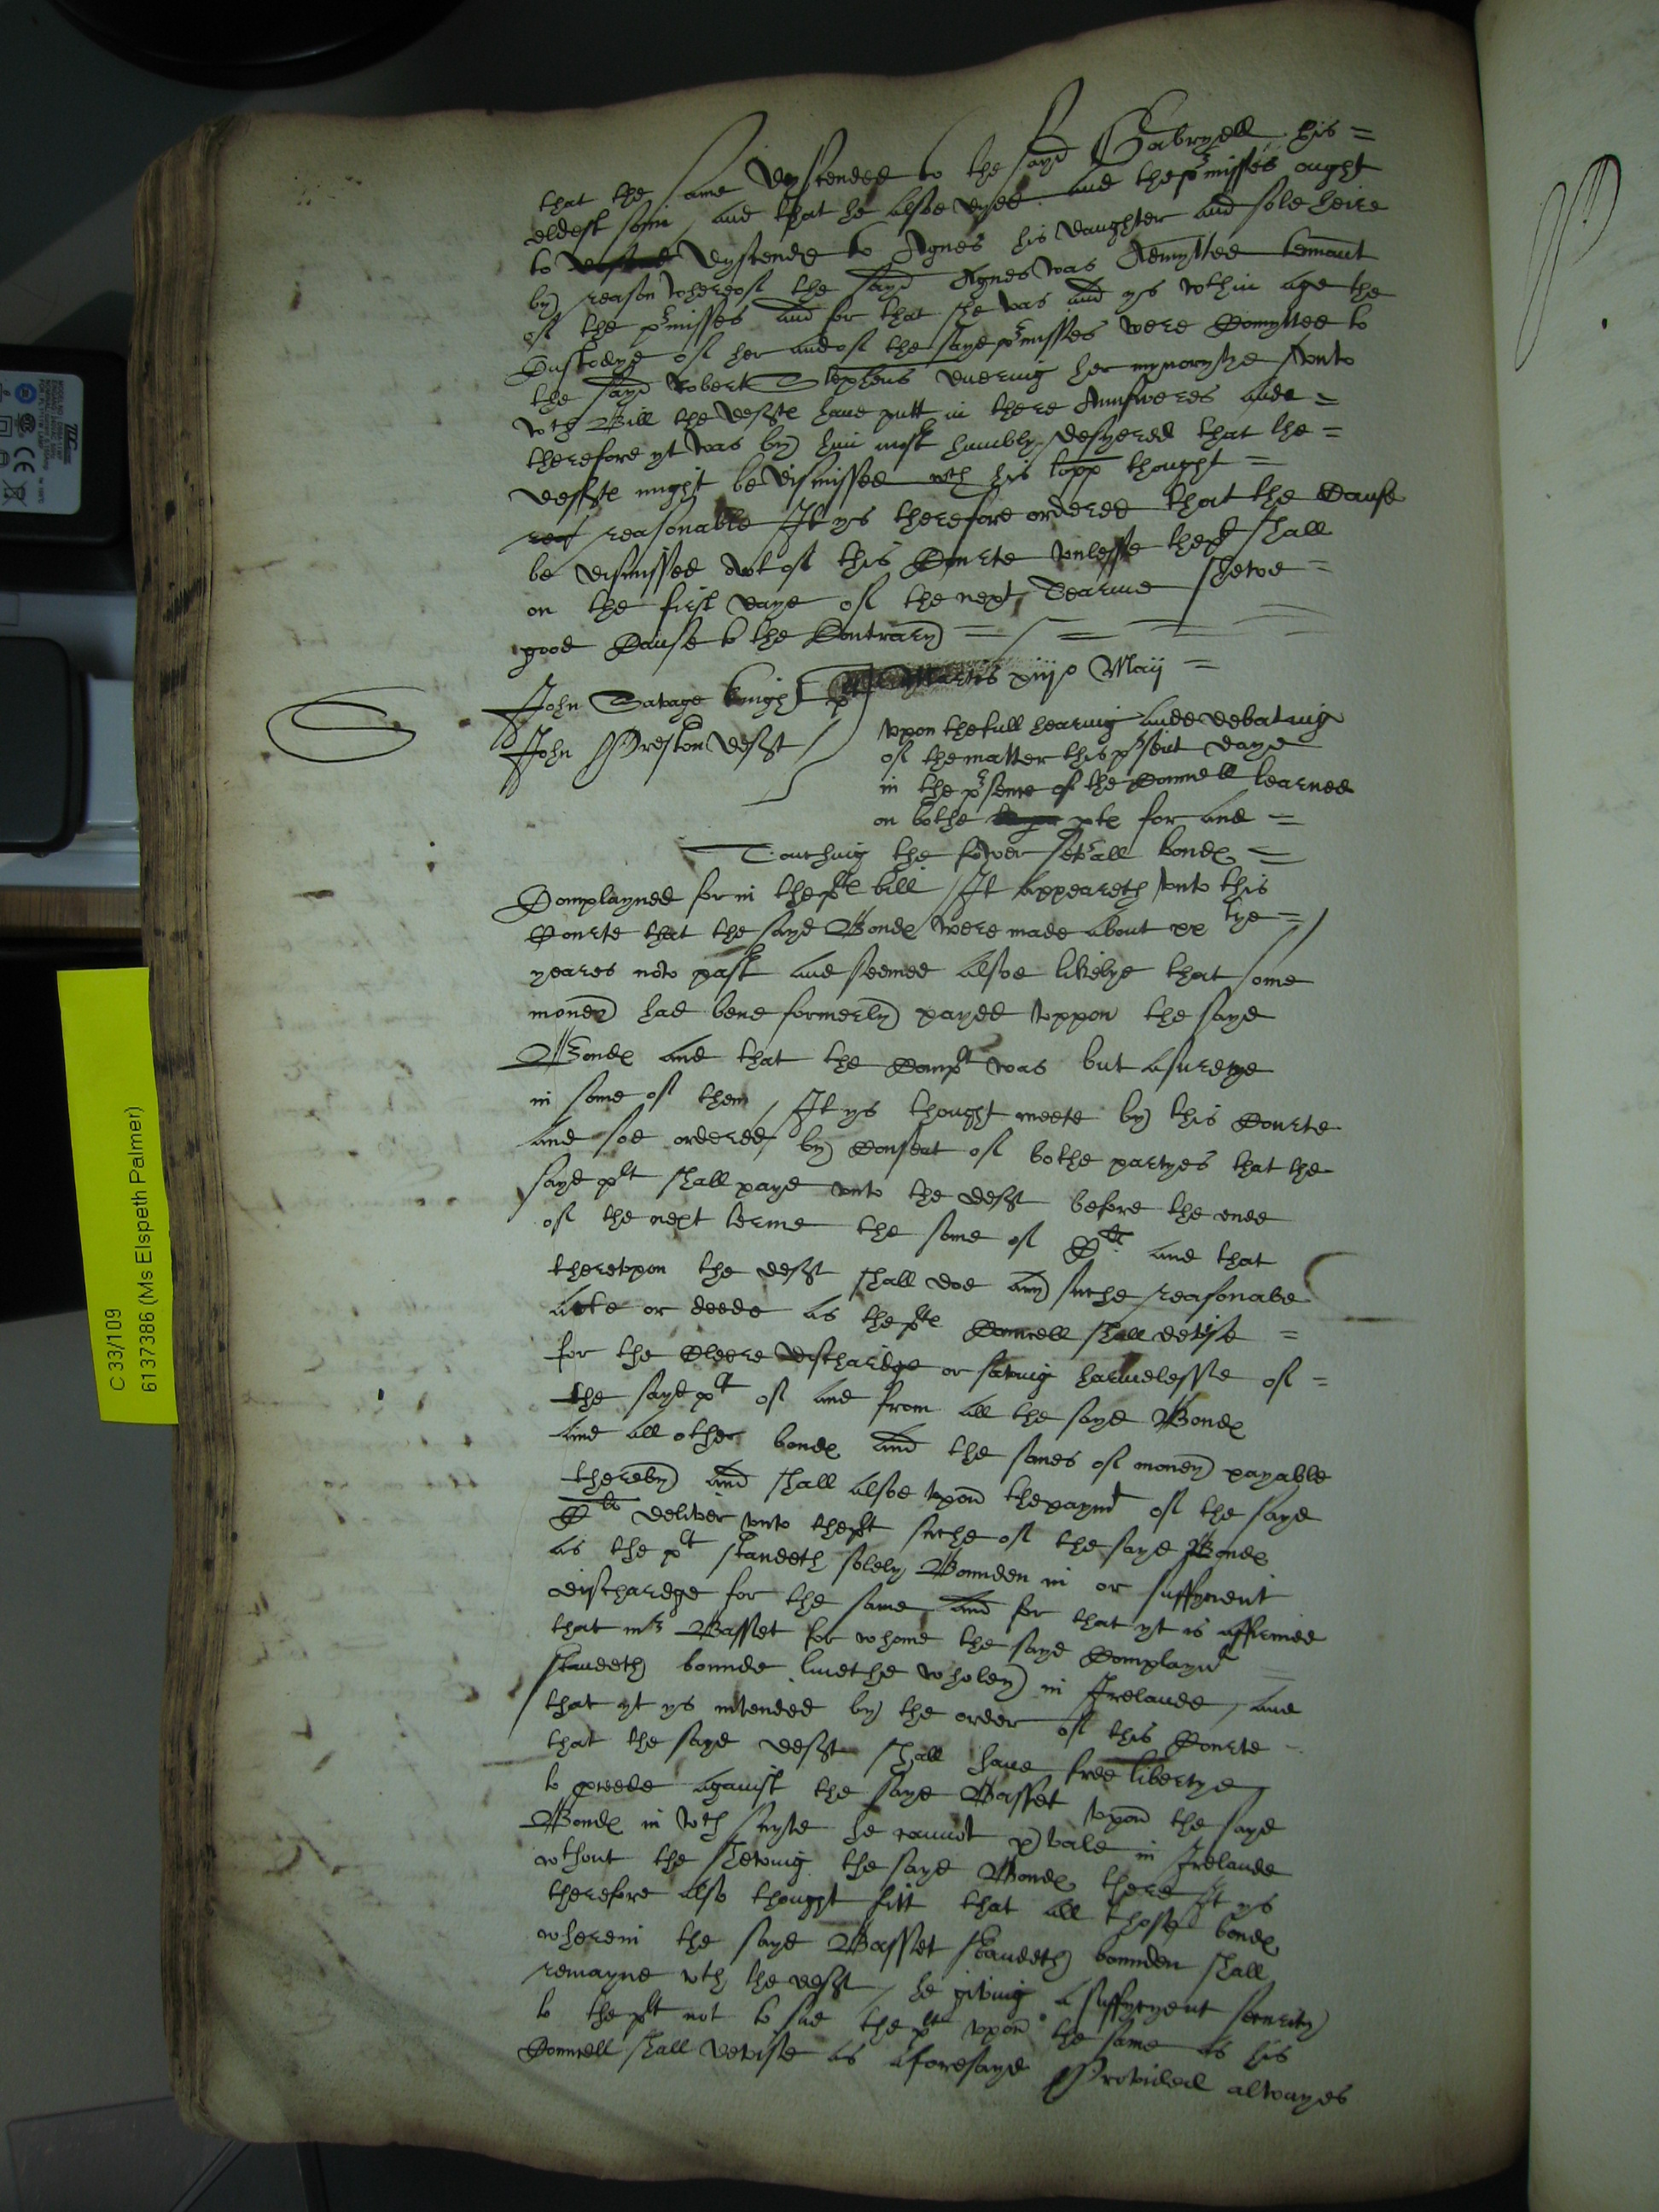 that the same dyscended to the sayd Gabryell his =
eldest sonn and that he alsoe dyed and the pʳmisses ought
to dyscende to Agnes his daughter and sole heire
by reason whereof the sayd Agnes was Admytted tennaunt
of the pʳmisses and for that she was and ys wᵗhin age the
Custodye of her and of the sayd pʳmisses were Comytted to
the sayd Robert Stephens duering her mynorytye / Vnto
wᶜh Bill the defᵗᵉ haue putt in there Aunsweres ande =
therefore yt was by him most humbly desyered that the =
defᵗᵉ might be dismissed wᵗh his thought =
reasonable It ys therefore ordered that the Cause
be dismissed owt of this Courte vnlesse the plᵗ shall
on the first daye of the next Tearme shewe =
good Cause to the Contrary = / = = =
Martis xiijᵒ Maij =
John Savage knight pᵗ
John Preston defᵗ
Vpon the full hearing ande debating
of the matter this pʳsent daye
in the pʳsence of the Councell learned
on bothe pᵗᵉ for and =
Touching the fower seʳall bondℯ =
Complayned for in the pᵗᵉ bill / It appeareth vnto this
Courte that the sayd Bondℯ were made about xx tye = /
yeares now past and seemed alsoe likelye that some
money had bene formerly payed vppon the sayd
Bondℯ and that the Compᵗ was but a suretye
in some of them / It ys thought meete by this Courte
and soe ordered by Consent of bothe partyes that the
sayd pᵗ shall paye vnto the defᵗ before the ende
of the next terme the some of Cˡⁱ and that
therevpon the defᵗ shall doe any suche reasonable
acte or deede as the pᵗᵉ Councell shall devise =
for the Cleere dischardge or saving harmelesse of =
the sayd pᵗ of and from all the sayd Bondℯ
and all other bondℯ and the somes of money payable
thereby and shall alsoe vpon the paymᵗ of the sayd
Cˡⁱ deliver vnto the pᵗ suche of the sayd Bondℯ
as the pᵗ standeth solely Bounden in or suffycient
dischardge for the same And for that yt is affirmed
that mʳ Basset for whome the sayd Complaynᵗ
standeth bounde liuethe wholey in Irelande / and
that yt ys intended by the order of this Courte
that the sayd defᵗ shall haue free libertye
to proceede against the sayd Basset vpon the sayd
Bondℯ in wᶜh suyte he cannot pʳvaile in Irelande
wᵗhout the shewing the sayd Bondℯ there It ys
therefore also thought fitt that all those bondℯ
wherein the sayd Basset standeth bounden shall
remayne wᵗh the defᵗ / he giving a suffycyent securitye
to the pᵗ not to sue the pᵗ vpon the same as his
Councell shall devise as aforesayd Provided alwayes
C 33/109
61 37386 (Ms Elspeth Palmer)